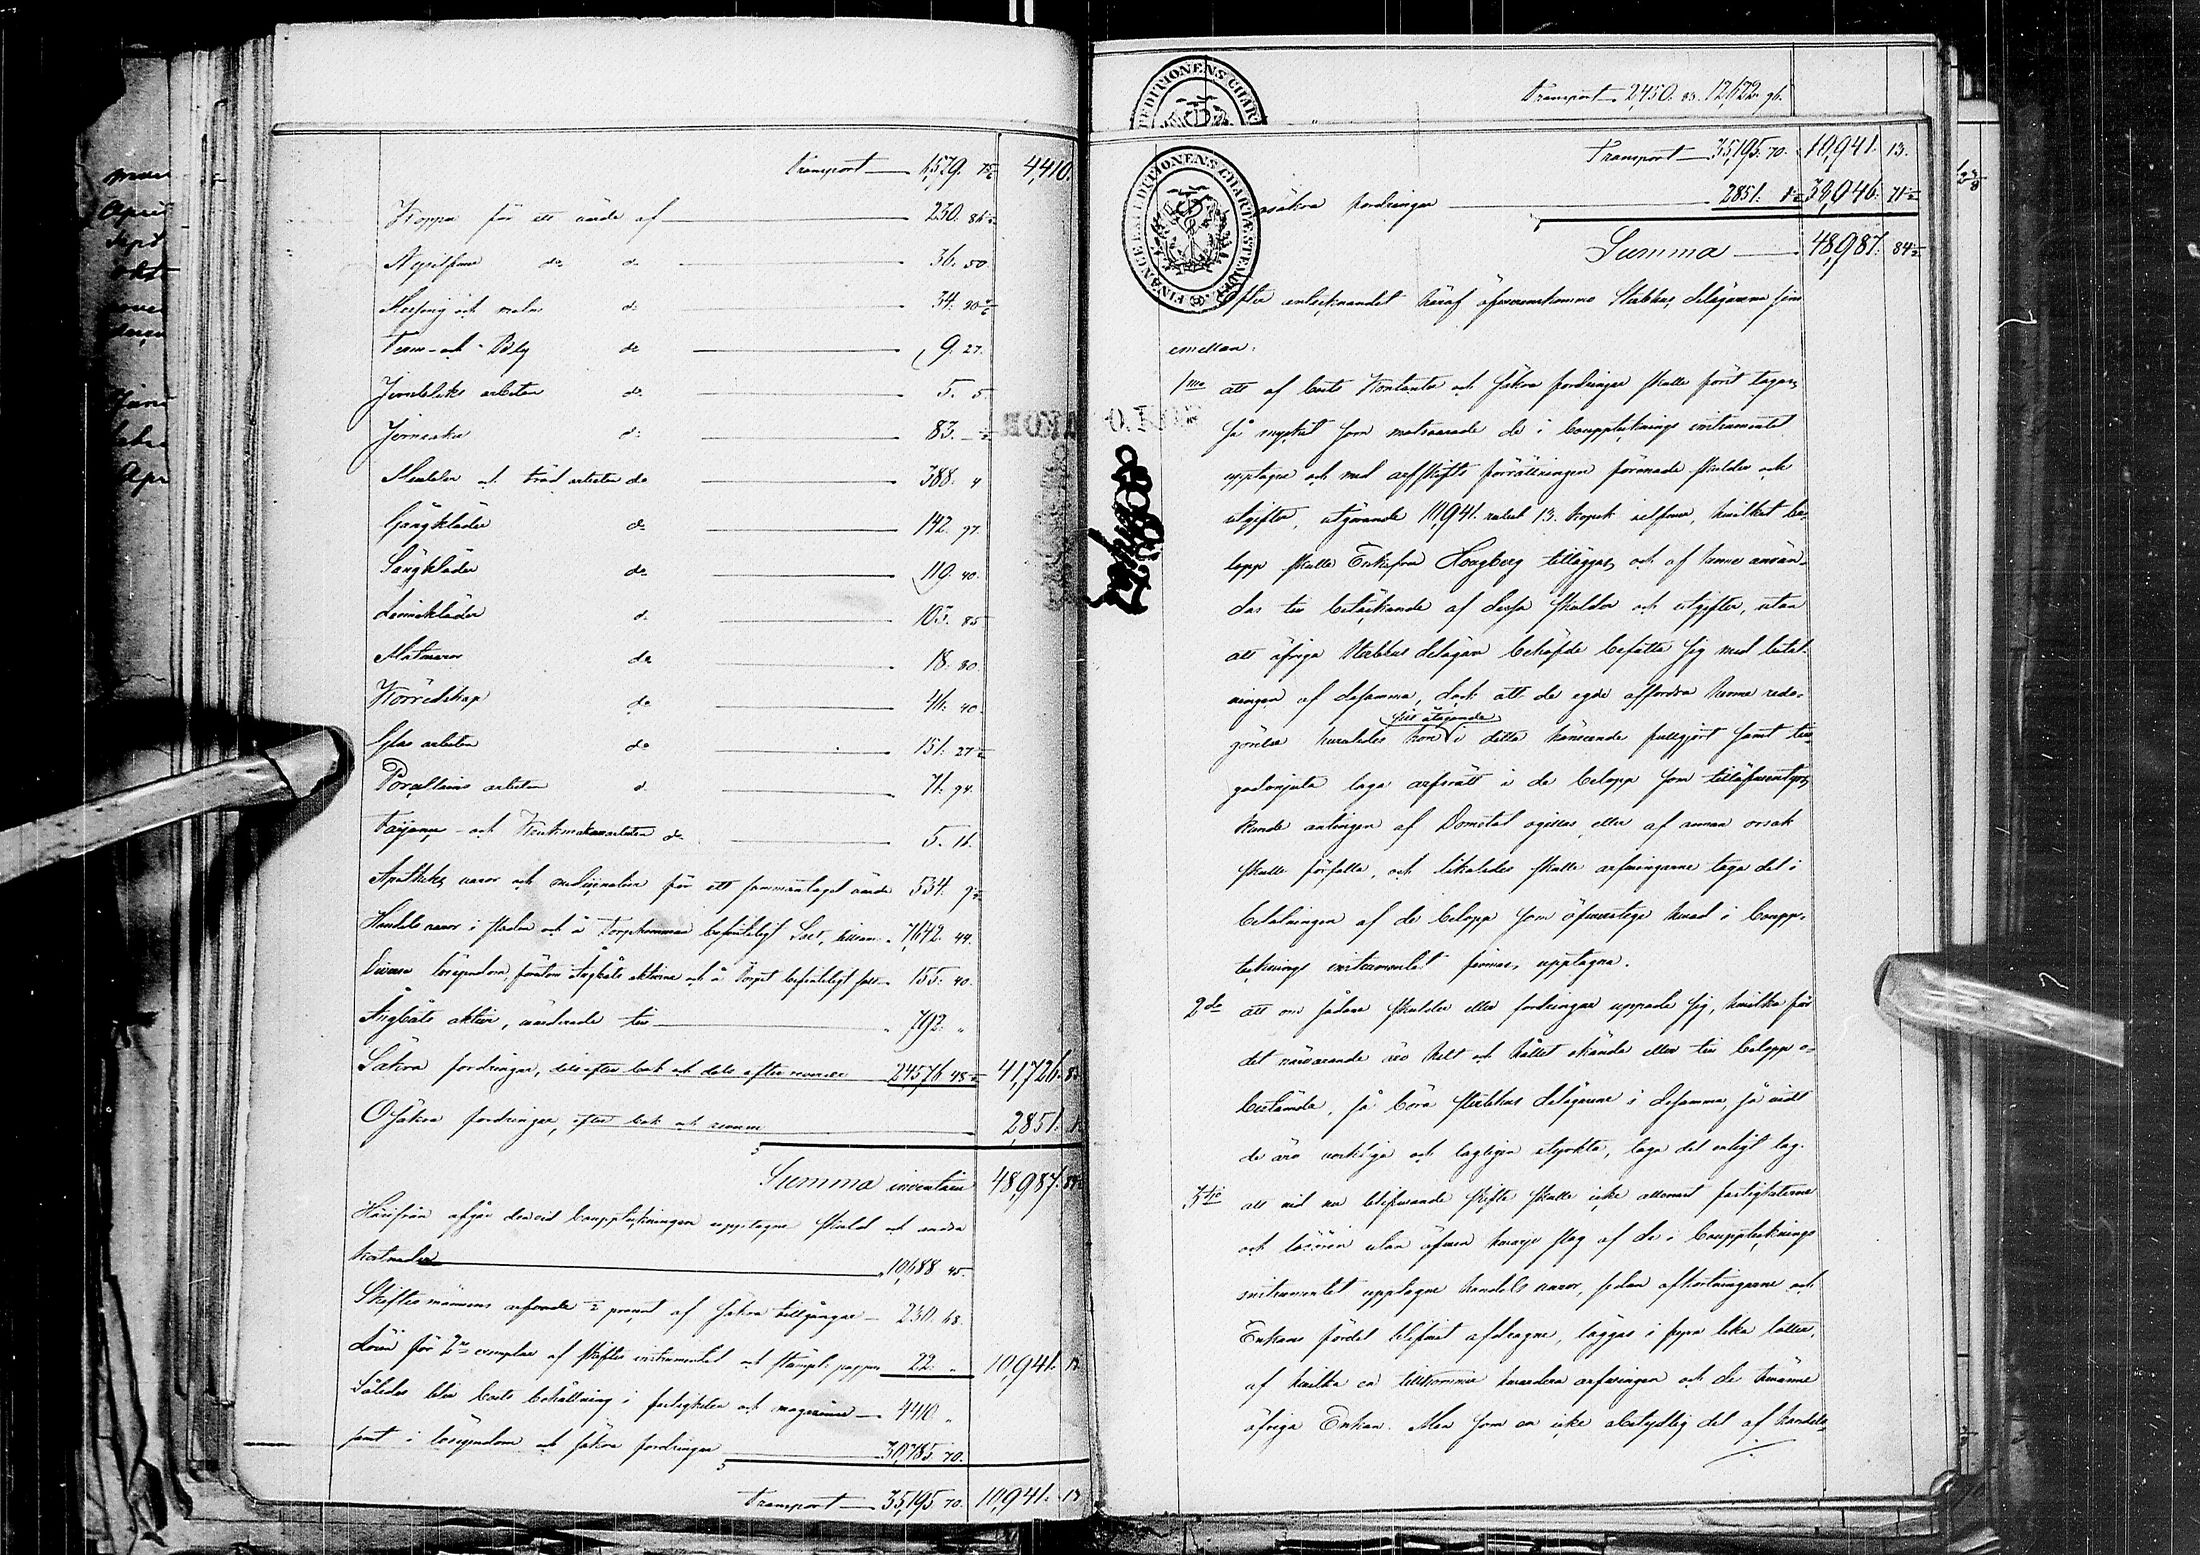 Transport 1,579. 75 4,410.
Koppar för ett värde af 230. 86½
Nysilfver do do 36. 50
Messing och malm do 34. 20
Tenn- och Bly do 9. 27.
Jernblecks arbeten do 5. 5
Jernsaker do 83. ½
Meubler och träd arbeten do 388. 4
Gångkläder do 142. 97.
Sängkläder do 119. 40.
Linnekläder do 103. 85
Matvaror do 18. 80.
Körredskap do 411. 40.
Glas arbeten do 151. 27½
Porcellains arbeten do 71. 94.
Fayance- och Krukmakarearbeten do 5. 16.
Apotheks varor och medicinalier för ett sammanlagdt värde 534. 9½
Handels varor i staden och å Torpshamman befinteligt Salt, tillsam. 7,642. 44.
Diverse lösegendom, förutom Ångbåts aktierna och å Torpet befinteligt salt 155. 40.
Ångbåts aktier, värderade till 792. "
Säkra fordringar, dels efter bok och dels efter reverser 24576. 48½ 41,726. 83
Osäkra fordringar, efter bok och reverser 2,851. 1
Summa inventarii 48,987. 84
Härifrån afgår den vid bouppteckningen upptagne skuld och andra
kostnader 10,688. 45.
Skiftesmännens arfvode ½ procent af säkra tillgångar 230. 68.
Lösen för 2ne exemplar af skiftes instrumentet och stämpl. papper 22. " 10,941. 13.
Således blir boets behållning i fastigheter och magasiner 4410 "
samt i lösegendom och säkra fordringar 30,785. 70.
Transport 35,195. 70. 10,941. 13
Transport 2,450. 83. 12,622. 96.
Transport 35,195. 70. 10,941. 13.
osäkra fordringar 2851. 1½ 38,046. 71½
Summa 48,987. 84½
Efter antecknandet häraf öfverenskommo Sterbhus delägarena sins
emellan:
1mo att af boets Kontanter och säkra fordringar skulle först tagas
så mycket som motsvarade de i boupptecknings instrumentet
upptagne och med arfskifts förrättningen förenade skulder och
utgifter, utgörande 10,941. rubel 13. kopek silfver, hvilket be-
lopp skulle Enkefru Hougberg tilläggas och af henne använ-
das till betäckande af dessa skulder och utgifter, utan
att öfriga sterbhus delägare behöfde befatta sig med betal-
ningen af desamma, dock att de egde affordra henne redo-
görelse huruledes hon sitt åtagande i detta hänseende fullgjort samt till-
godonjuta laga arfsrätt i de belopp som tilläfventyrs
kunde antingen af Domstol ogillas eller af annan orsak
skulle förfalla, och likaledes skulle arfvingarne taga del i
betalningen af de belopp som öfverstege hvad i boupp-
tecknings instrumentet finnas upptagne.
2do att om sådane skulder eller fordringar yppade sig, hvilka för
det närvarande äro helt och hållet okända eller till belopp o-
bestämda, så böra sterbhus delägarne i desamma, så vidt
de äro verkliga och lagligen styrkta, taga del enligt lag.
3tio att vid nu blifvande skifte skulle icke allenast fastigheterne
och lösören utan äfven hvarje slag af de i boupptecknings
instrumentet upptagne handels varor, sedan afkortningarne och
Enkans fördel blifvit afdragne, läggas i fyra lika lotter,
af hvilka en tillkommer hvardera arfvingen och de tvänne
öfriga Enkan. Men som en icke obetydlig del af handels-